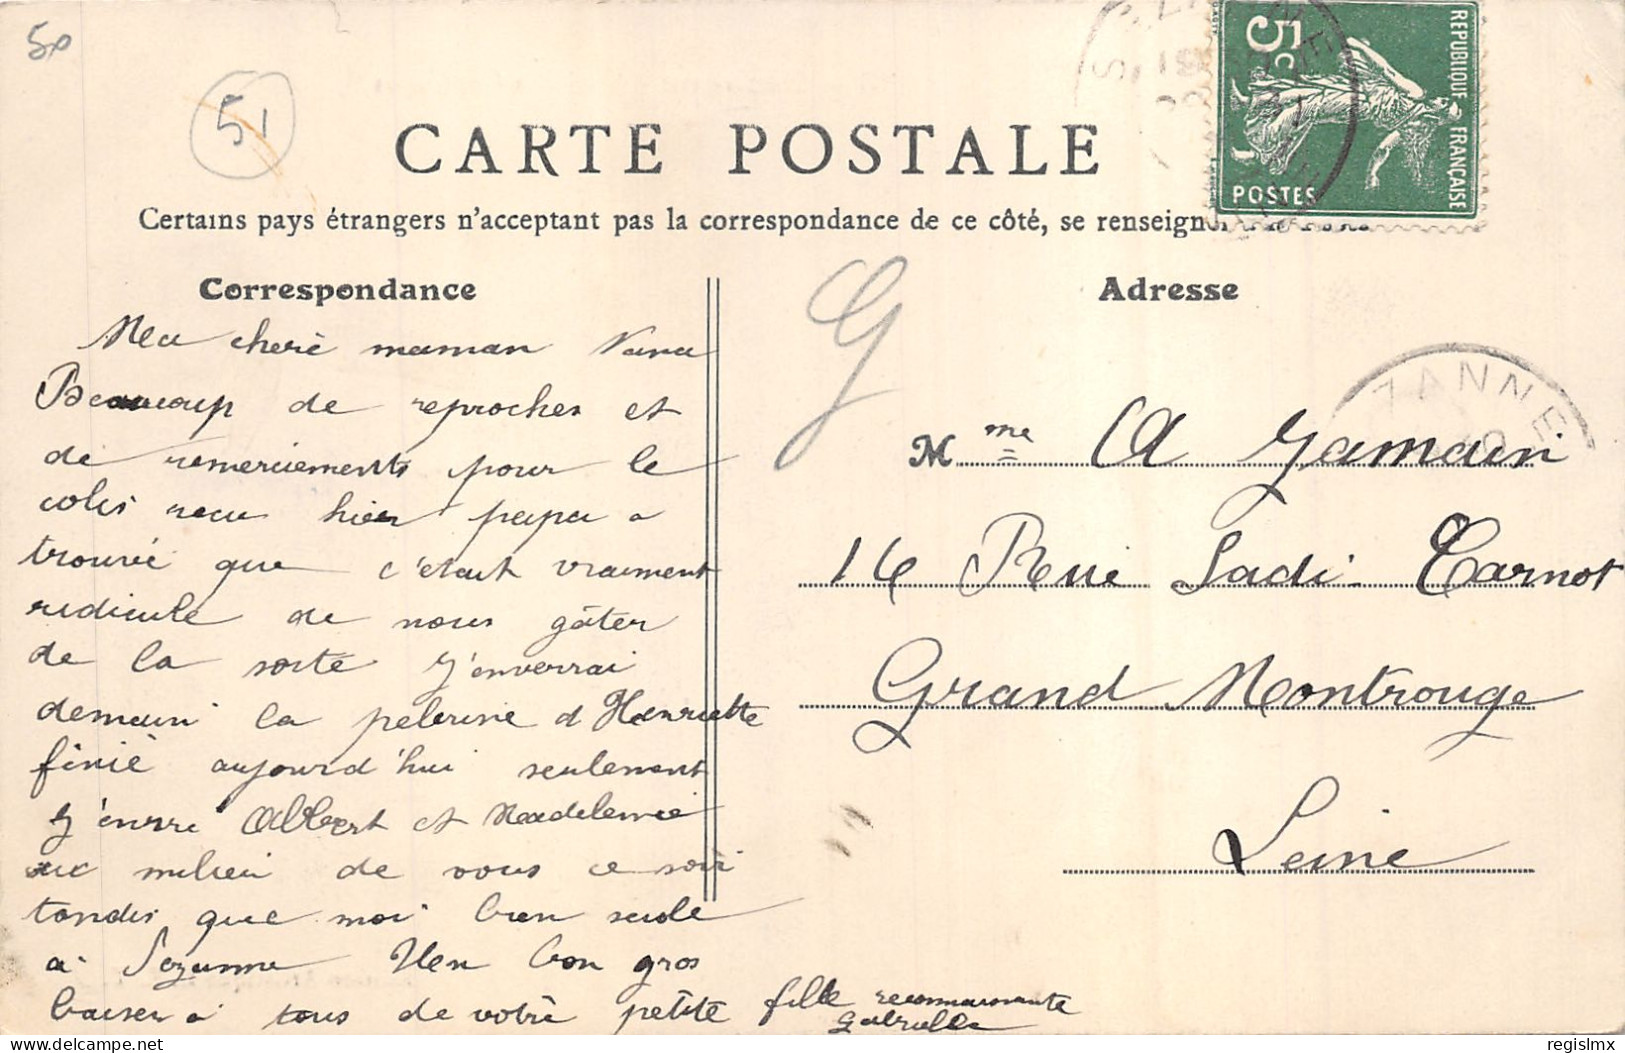 50
51
CARTE POSTALE
5c
REPUBLIQUE FRANÇAISE
POSTES
Certains pays étrangers n'acceptent pas la correspondance de ce côté, se renseigner à la Poste
Correspondance
Ma cherè maman Nana
Beaucoup de reproches et
de remerciements pour le
colis recu hier papa a
trouvé que c'était vraiment
ridicule de nous gâter
de la sorte J'enverrai
demain la pelerine d'Henriette
finie aujourd'hui seulement
J'envie Albert et Madeleine
au milieu de vous ce soir
tandis que moi bien seule
à Sezanne Un bon gros
baiser à tous de votre petite fille reconnaissante
Gabrielle
G
Adresse
ZANNE
Mme A Gamain
14 Rue Sadi-Carnot
Grand Montrouge
Seine
regislmx
delcampe.net